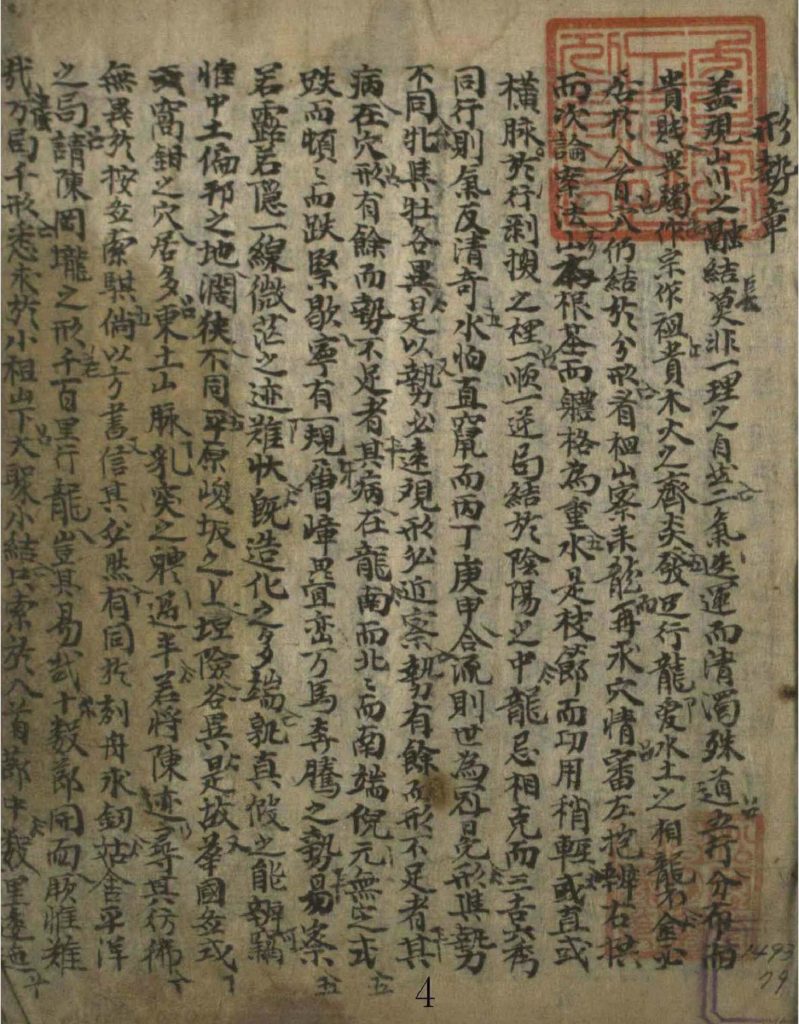 形勢章
盖観山川之融結莫非一理之自然二氣迭運而清濁殊道五行分布而
貴賤異躅作宗作祖貴木火之齊炎發迹行龍愛水土之相
若於入首穴仍結於分形看祖山察来龍再求穴情審左抱辨右拱
而次論案法山本根基而軆格為重水是枝節而功用稍輕或直或
橫脉於行剥換之裡一順一逆局結於陰陽之中龍忌相克而三吉六秀
同行則氣反清奇水怕直竄而丙丁庚甲合流則世為冠冕形與勢
不同牝與牡各異是以勢必遠觀形必近察勢有餘而形不足者其
病在穴形有餘而勢不足者其病在龍南而北北而南端倪元無定或
跌而頓頓而跌緊歇寧有一規曾嶂疊巒万馬奔騰之勢易案
若露若隱一線微茫之迹難状旣造化之多端孰真假之能辨竊
惟中土偏邦之地濶狹不同平原峻坂之上坦險各異是故華國多或
窩鉗之穴居多東土山脉乳突之聘爲半若將陳迹尋其彷彿
無異於按圖索騏倘以方書信其必然有同於刻舟求釰姑舍平洋
之局請陳岡壠之形千百里行龍豈其易哉十數節開面厥惟難
哉万局千形悉求於小祖山下大聚小結只索於入首節中數里
1493
79
4